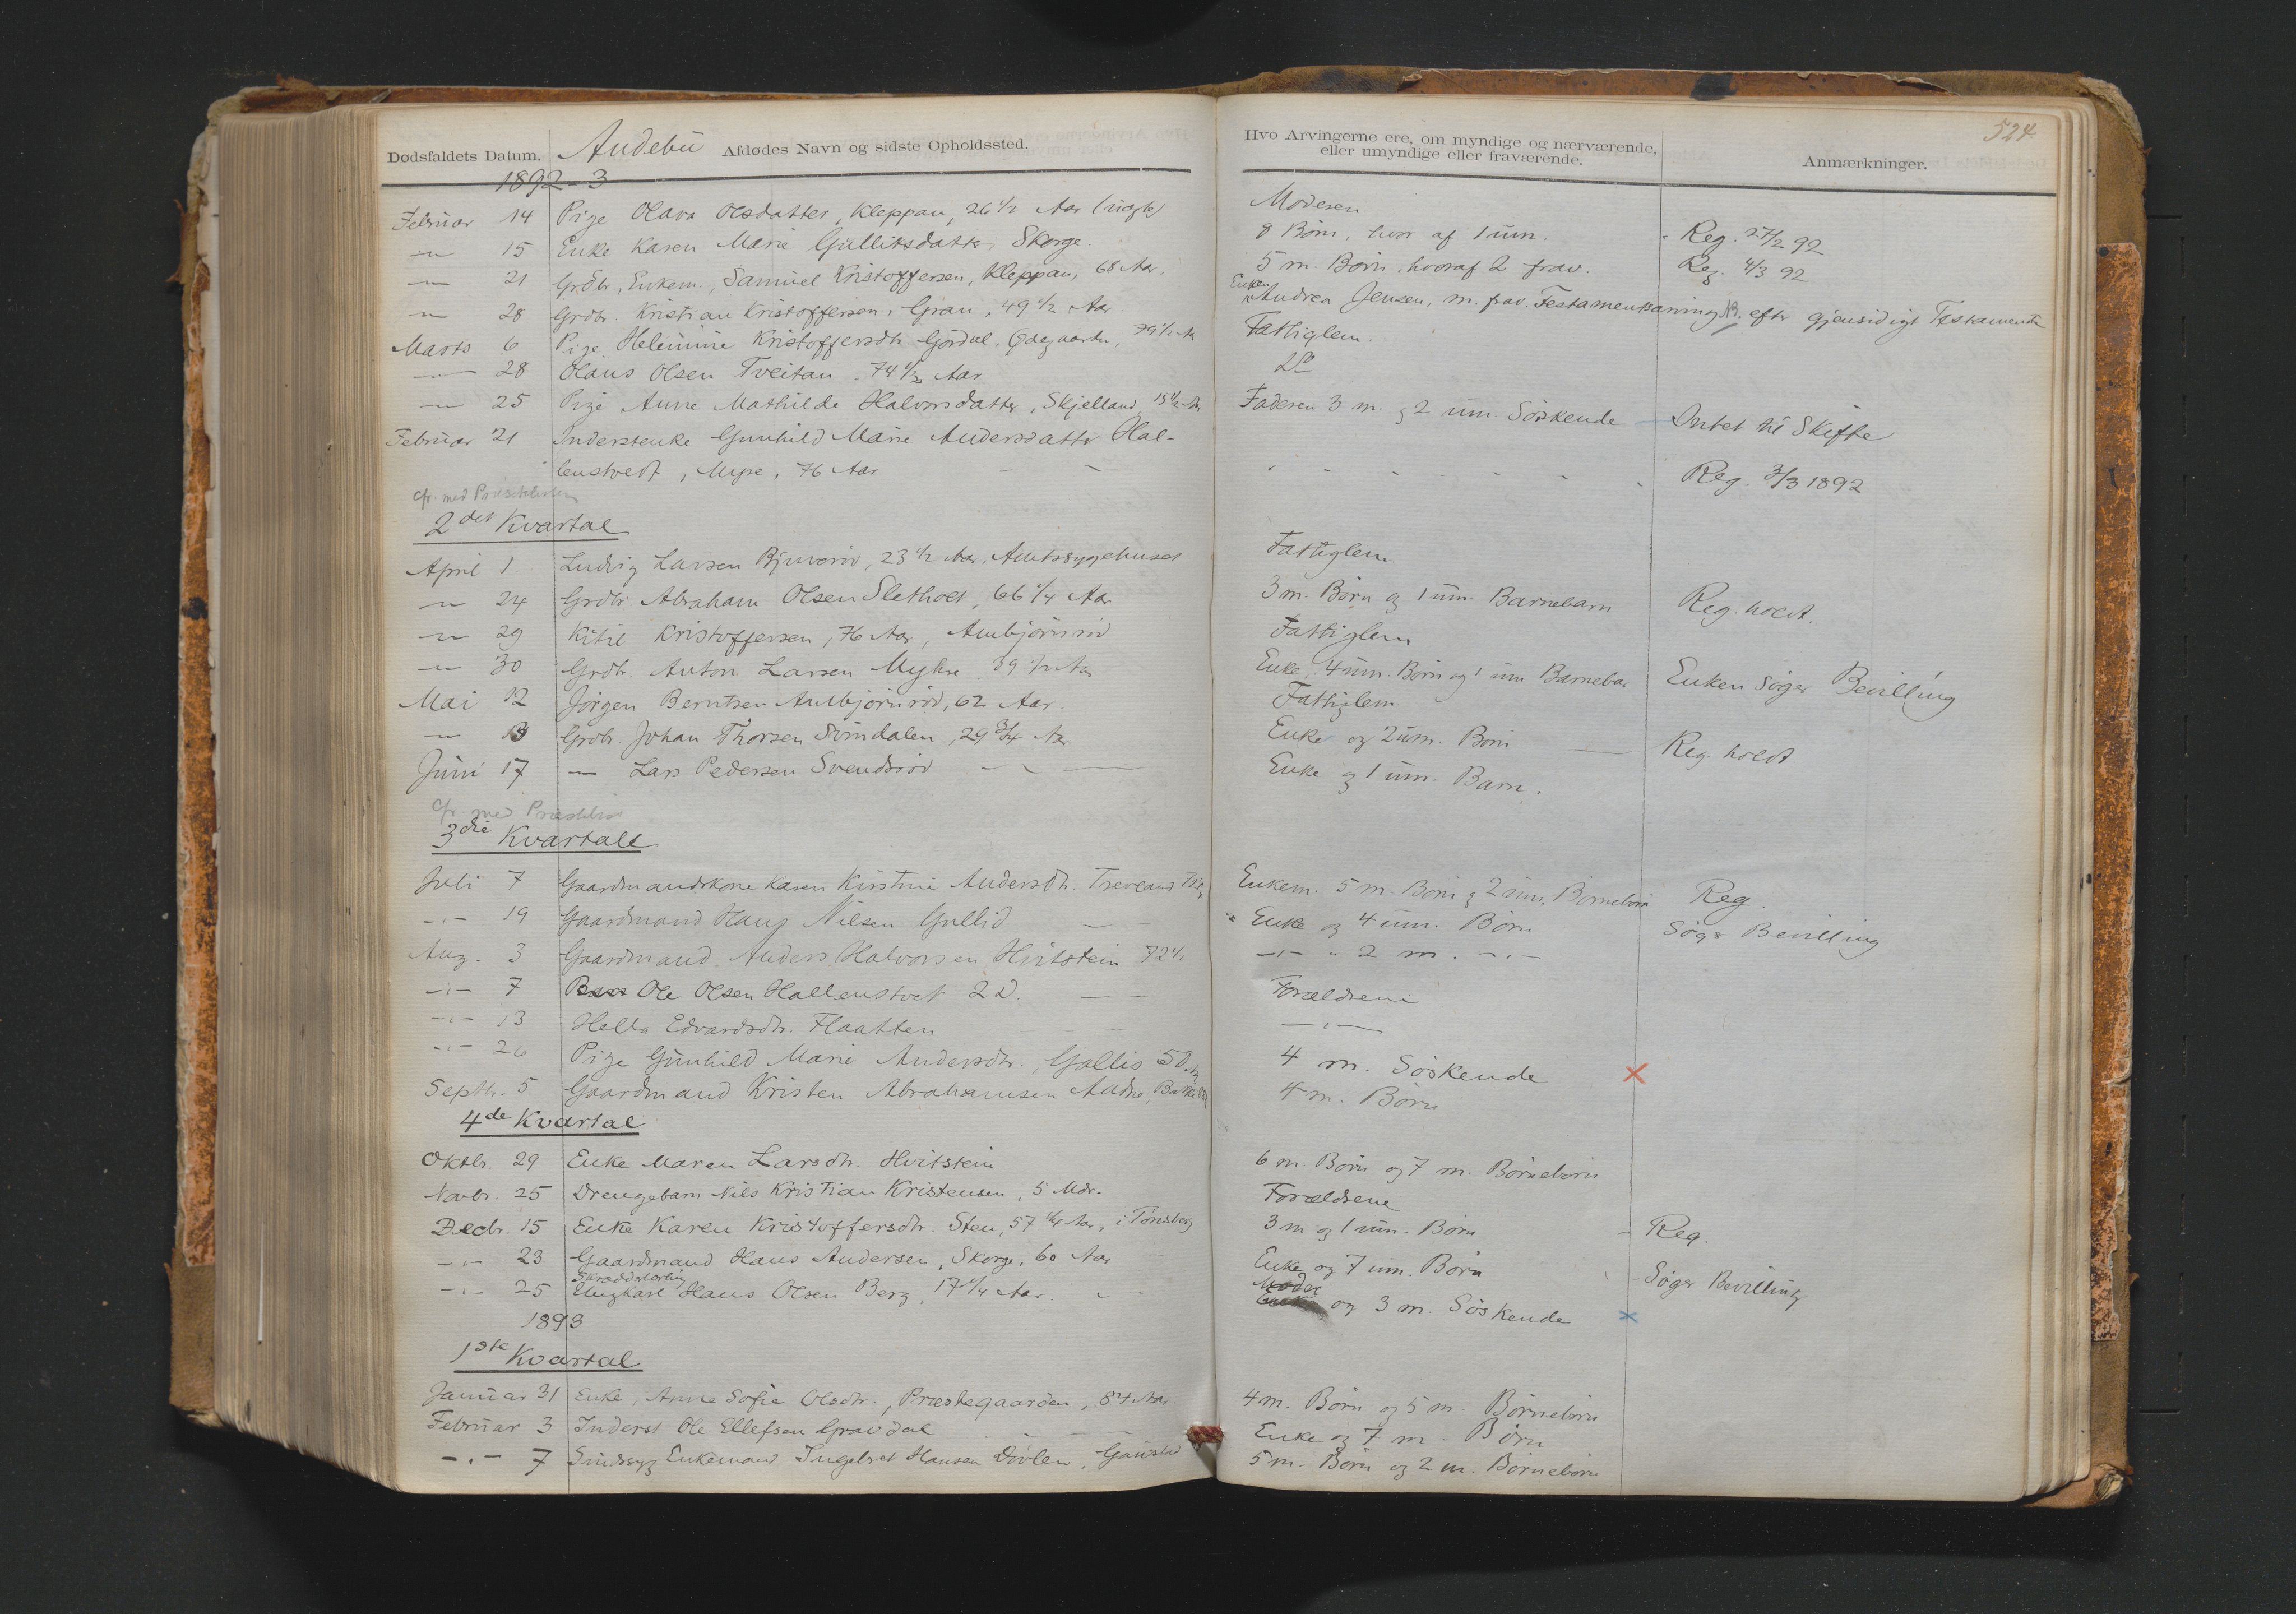 Dødsfaldets Datum. Andebu Afdødes Navn og sidste Opholdssted.
1892-3
Februar 14 Pige Olava Olsdatter, Kleppan, 26 1/2 Aar
" 15 Enke Karen Marie Gulliksdatter, Skorge.
" 21 Grdbr., Enkem., Samuel Kristoffersen, Kleppan, 68 Aar.
" 28 Grdbr. Kristian Kristoffersen, Gran, 49 1/2 Aar
Marts 6 Pige Helemine Kristoffersdtr. Gjerdal, Ødegaarden, 79 1/2 Aar
" 28 Olaus Olsen Tveitan. 74 1/2 Aar
" 25 Pige Anne Mathilde Halvorsdatter, Skjelland, 15 1/2 Aar
Februar 21 Inderstenke Gunhild Marie Andersdatter Hal-
lenstvedt, Myre, 76 Aar
cfr. med Præstelisten
2det Kvartal
April 1 Ludvig Larsen Bjuerød, 23 1/2 Aar, Amtssygehuset
" 24 Grdbr. Abraham Olsen Sletholt, 66 1/4 Aar
" 29 Kitil Kristoffersen, 76 Aar, Ambjørnrød
" 30 Grdbr. Anton Larsen Myhre 39 1/2 Aar
Mai 12 Jørgen Berntsen Ambjørnrød, 62 Aar
" 13 Grdbr. Johan Thorsen Sundalen, 29 3/4 Aar
Juni 17 — Lars Pedersen Svendsrød
cfr. med Præstelisten
3die Kvartall
Juli 7 Gaardmandskone Karen Kirstine Andersdtr. Trevland
-"- 19 Gaardmand Hans Nilsen Gullid
Aug. 3 Gaardmand Anders Halvorsen Hvitstein 72 1/2
-"- 7 Barn Ole Olsen Hallenstvet 2 D.
-"- 13 Hella Edvardsdtr. Flaatten
-"- 26 Pige Gunhild Marie Andersdtr., Gallis
Septbr. 5 Gaardmand Kristen Abrahamsen Aadne,
4de Kvartal
Oktbr. 29 Enke Maren Larsdtr. Hvitstein
Novbr. 25 Drengebarn Nils Kristian Kristensen, 5 Mdr.
Decbr. 15 Enke Karen Kristoffersdtr. Sten, 57 1/4 Aar, i Tønsberg
-"- 23 Gaardmand Hans Andersen, Skorge, 60 Aar
Skrædderlærling
-"- 25 Ungkarl Hans Olsen Berg, 17 1/4 Aar.
1893
1ste Kvartal
Januar 31 Enke, Anne Sofie Olsdtr., Præstegaarden, 84 Aar
Februar 3 Inderst Ole Ellefsen Gravdal
-"- 7 Sindssyg Enkemand Ingebret Hansen Døvlen, Gaustad
524
Hvo Arvingerne ere, om myndige og nærværende, eller umyndige eller fraværende. Anmærkninger.
Moderen
8 Børn, hvor af 1 um. Reg. 27/2 92
5 m. Børn, hvoraf 2 frav. Reg. 4/3 92
Enken
Andrea Jensen, m. frav. Testamentsarving efter gjensidigt Testamente
Fattiglem.
Do
Faderen 3 m. og 2 um. Søskende Intet til Skifte
Reg. 3/3 1892
Fattiglem
3 m. Børn og 1 um. Barnebarn Reg. holdt.
Fattiglem
Enke, 4 um. Børn og 1 um Barnebar Enken søger Bevilling
Fattiglem
Enke og 2 um. Børn Reg. holdt
Enke og 1 um. Barn.
Enkem. 5 m. Børn og 2 um. Børnebørn Reg.
Enke og 4 um. Børn Søger Bevilling
-"- " 2 m. -"-
Forældrene
-"-
4 m. Søskende
4 m. Børn
6 m. Børn og 7 m. Børnebørn
Forældrene
3 m og 1 um. Børn Reg.
Enke og 7 um. Børn Søger Bevilling
Moder
og 3 m. Søskende
4 m. Børn og 5 m. Børnebørn
Enke og 7 m. Børn
5 m. Børn og 2 m. Børnebørn